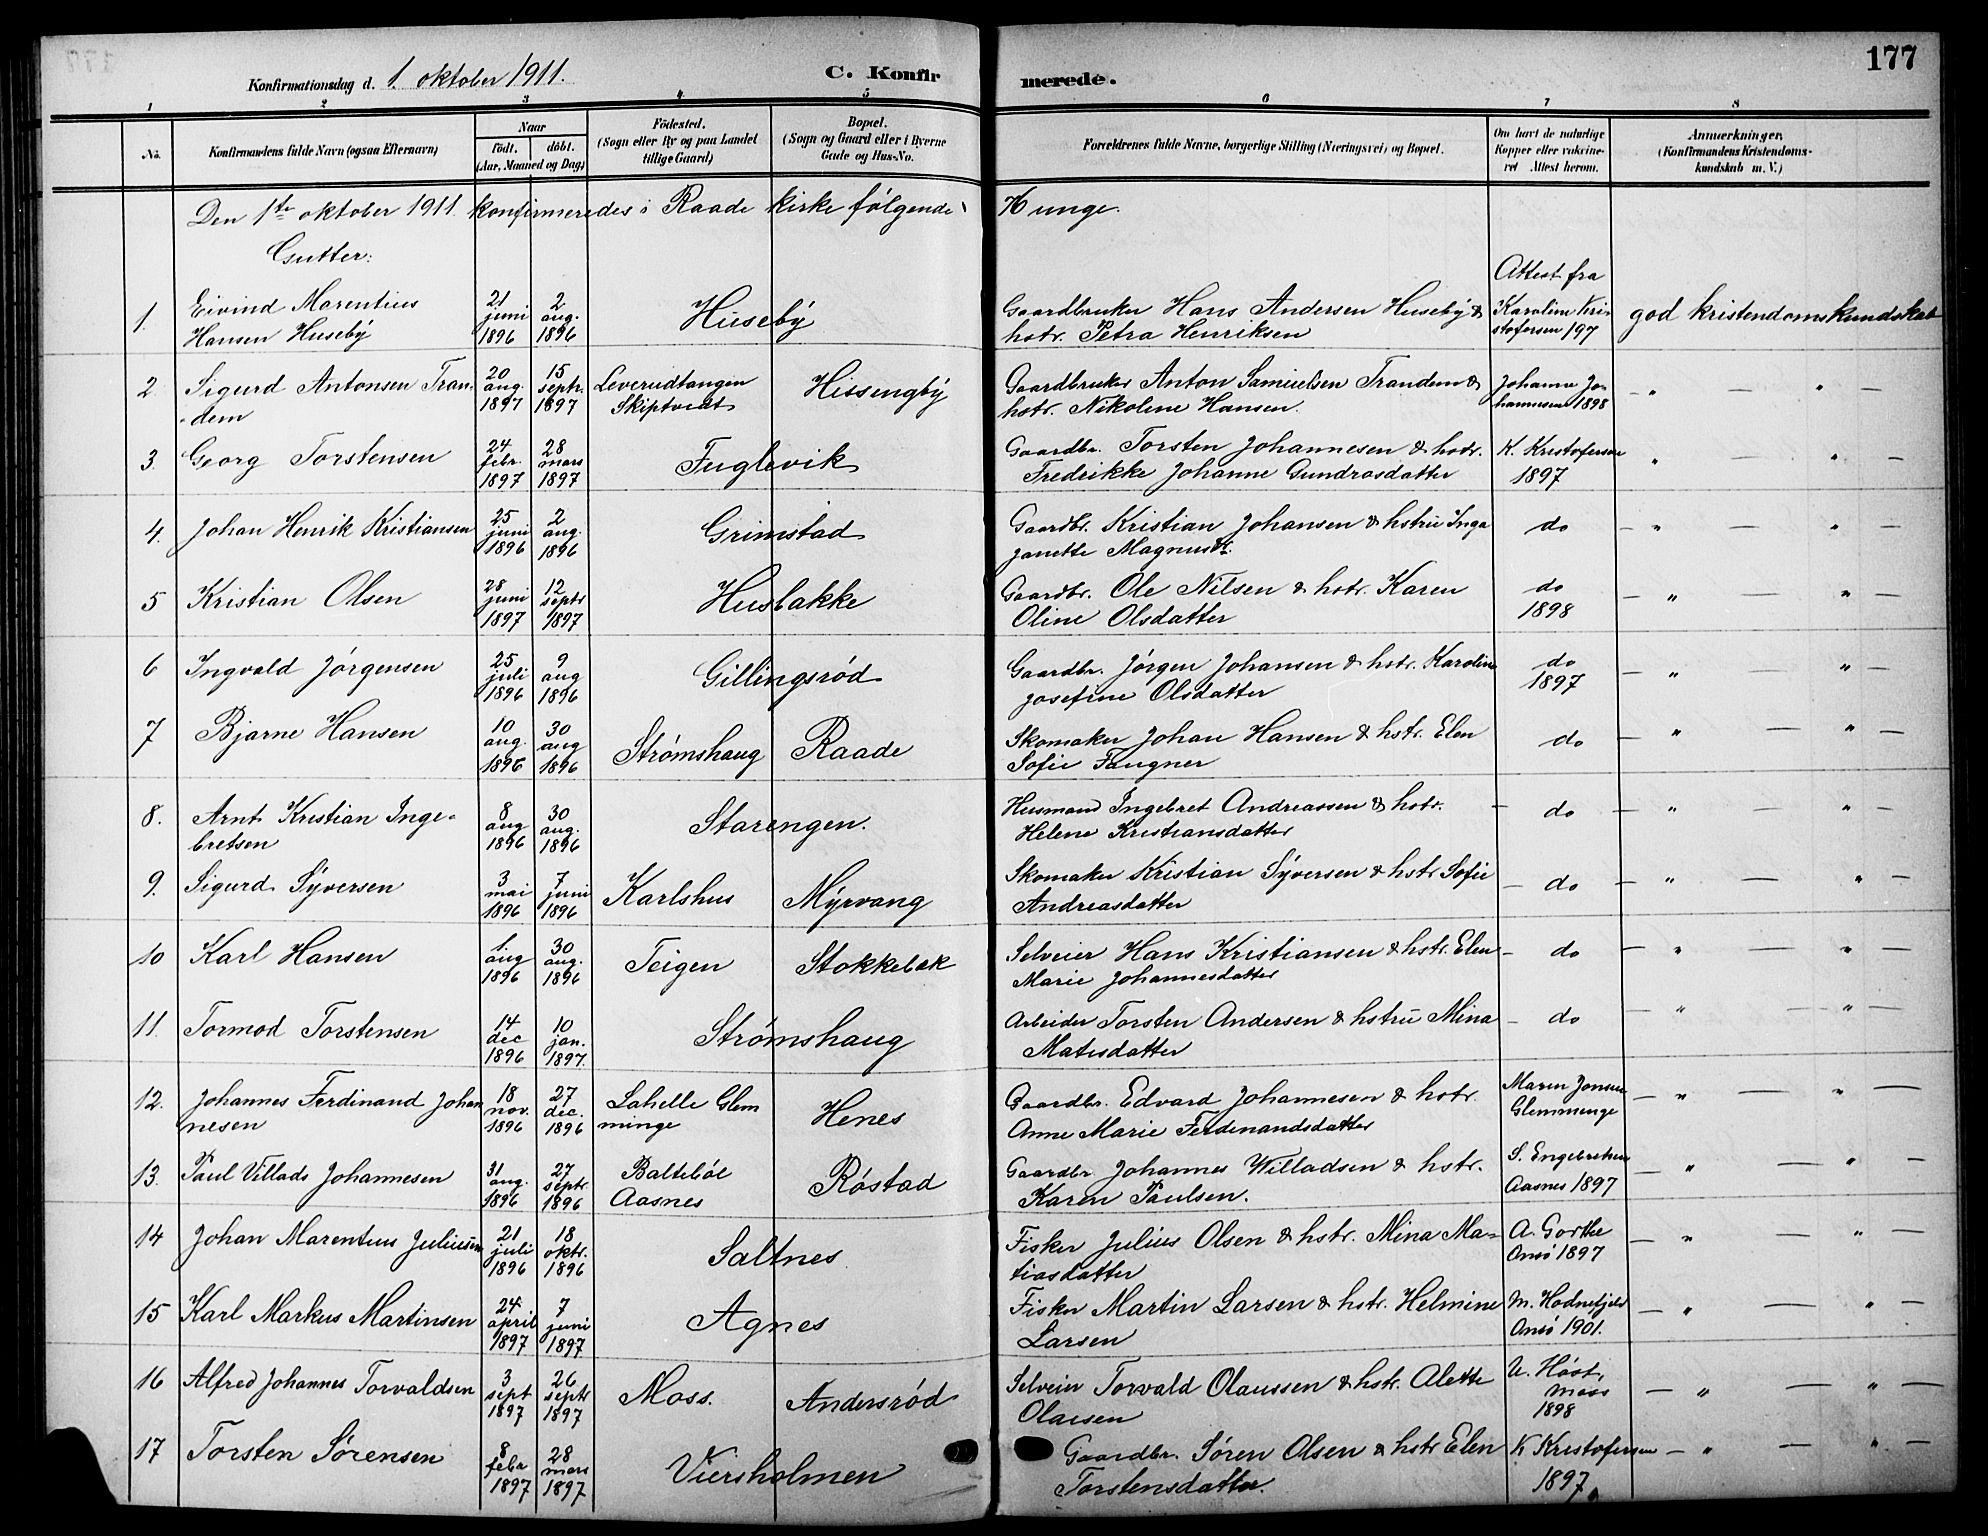 177
Konfirmationsdag d. 1. oktober 1911. C. Konfirmerede.
1 2 3 4 5 6 7 8
No. Konfirmandens fulde Navn (ogsaa Efternavn) Naar født. døbt. (Aar, Maaned og Dag) Fødested. (Sogn eller By og paa Landet tillige Gaard) Bopæl. (Sogn og Gaard eller i Byerne Gade og Hus-No. Forældrenes fulde Navne, borgerlige Stilling (Næringsvei) og Bopæl. Om havt de naturlige Kopper eller vaccineret Attest herom. Anmærkninger. (Konfirmandens Kristendomskundskab m. V.)
Den 1ste oktober 1911 konfirmeredes i Raade kirke følgende unge.
Gutter:
Attest fra
1. Eivind Marentius Hansen Huseby 21 juni 1896 2 aug. 1896 Huseby Gaardbruker Hans Andersen Huseby & hstr. Petra Henriksen Karoline Kristofersen 197 god kristendomskundskab
2. Sigurd Antonsen Trandem 20 aug. 1897 15 septr. 1897 Leverudtangen Skiptvedt Hissengby Gaardbruker Anton Samuelsen Trandem & hstr. Nikoline Hansen. Johanne Johannesen 1898 — " — " —
3. Georg Torstensen 24 febr. 1897 28 mars 1897 Fuglevik Gaardbr. Torsten Johannesen & hstr. Fredrikke Johanne Gundrosdatter K. Kristofersen 1897 " — " —
4. Johan Henrik Kristiansen 25 juni 1896 2 aug. 1896 Grimstad Gaardbr. Kristian Johansen & hstru Inga Janette Magnusdtr. do — " — " —
5 Kristian Olsen 28 juni 1897 12 septr 1897 Husbakke Gaardbr. Ole Nilsen & hstr. Karen Oline Olsdatter do 1898 — " — " —
6 Ingvald Jørgensen 25 juli 1896 9 aug 1896 Gillingsrød Gaardbr. Jørgen Johansen & hstr. Karoline Josefine Olsdatter do 1897 — " — " —
7 Bjarne Hansen 10 aug. 1896 30 aug 1896 Strømshaug Raade Skomaker Johan Hansen & hstr. Elen Sofie Faugner do — " — " —
8. Arnt Kristian Ingebretsen 8 aug 1896 30 aug. 1896 Starengen. Husmand Ingebret Andreassen & hstr. Helene Kristiansdatter — do — " — " —
9. Sigurd Syversen 3 mai 1896 7 juni 1896 Karlshus Myrvang Skomaker Kristian Syversen & hstr Sofie Andreasdatter — do — " — " —
10 Karl Hansen 1 aug 1896 30 aug. 1896 Teigen Stokkebæk Selveier Hans Kristiansen & hstr. Elen Marie Johannesdatter — do — " — " —
11. Tormod Torstensen 14 dec 1896 10 jan. 1897. Strømshaug Arbeider Torsten Andersen & hstru Mina Matisdatter — do — " — " —
12. Johannes Ferdinand Johannesen 18 nov. 1896 27 dec. 1896 Lahelle Glemminge Henes Gaardbr. Edvard Johannesen & hstr. Anne Marie Ferdinandsdatter Maren Jonsen Glemminge — " — " —
13. Paul Villads Johannesen 31 aug. 1896 27 septr. 1896 Aasnes Røstad Gaardbr. Johannes Willadsen & hstr. Karen Paulsen. S. Engebretsen Aasnes 1897 — " — " —
14 Johan Marentius Juliussen 21 juli 1896 18 oktr. 1896 Saltnes Fisker Julius Olsen & hstr. Mina Matiasdatter A. Gorthe Onsø 1897 — " — " —
15 Karl Markus Martinsen 24 april 1897 7 juni 1897 Agnes Fisker Martin Larsen & hstr. Helmine Larsen M. Hodnefjeld Onsø 1901. — " — " —
16 Alfred Johannes Torvaldsen 3 sept 1897 26 septr 1897 Moss. Andersrød Selveier Torvald Olaussen & hstr. Alette Olausen U. Høst, Moss 1898 — " — " —
17 Torsten Sørensen 8 febr 1897 28 mars 1897 Viersholmen Gaardbr. Søren Olsen & hstr Elen Torstensdatter. K. Kristofersen 1897 — " — " —